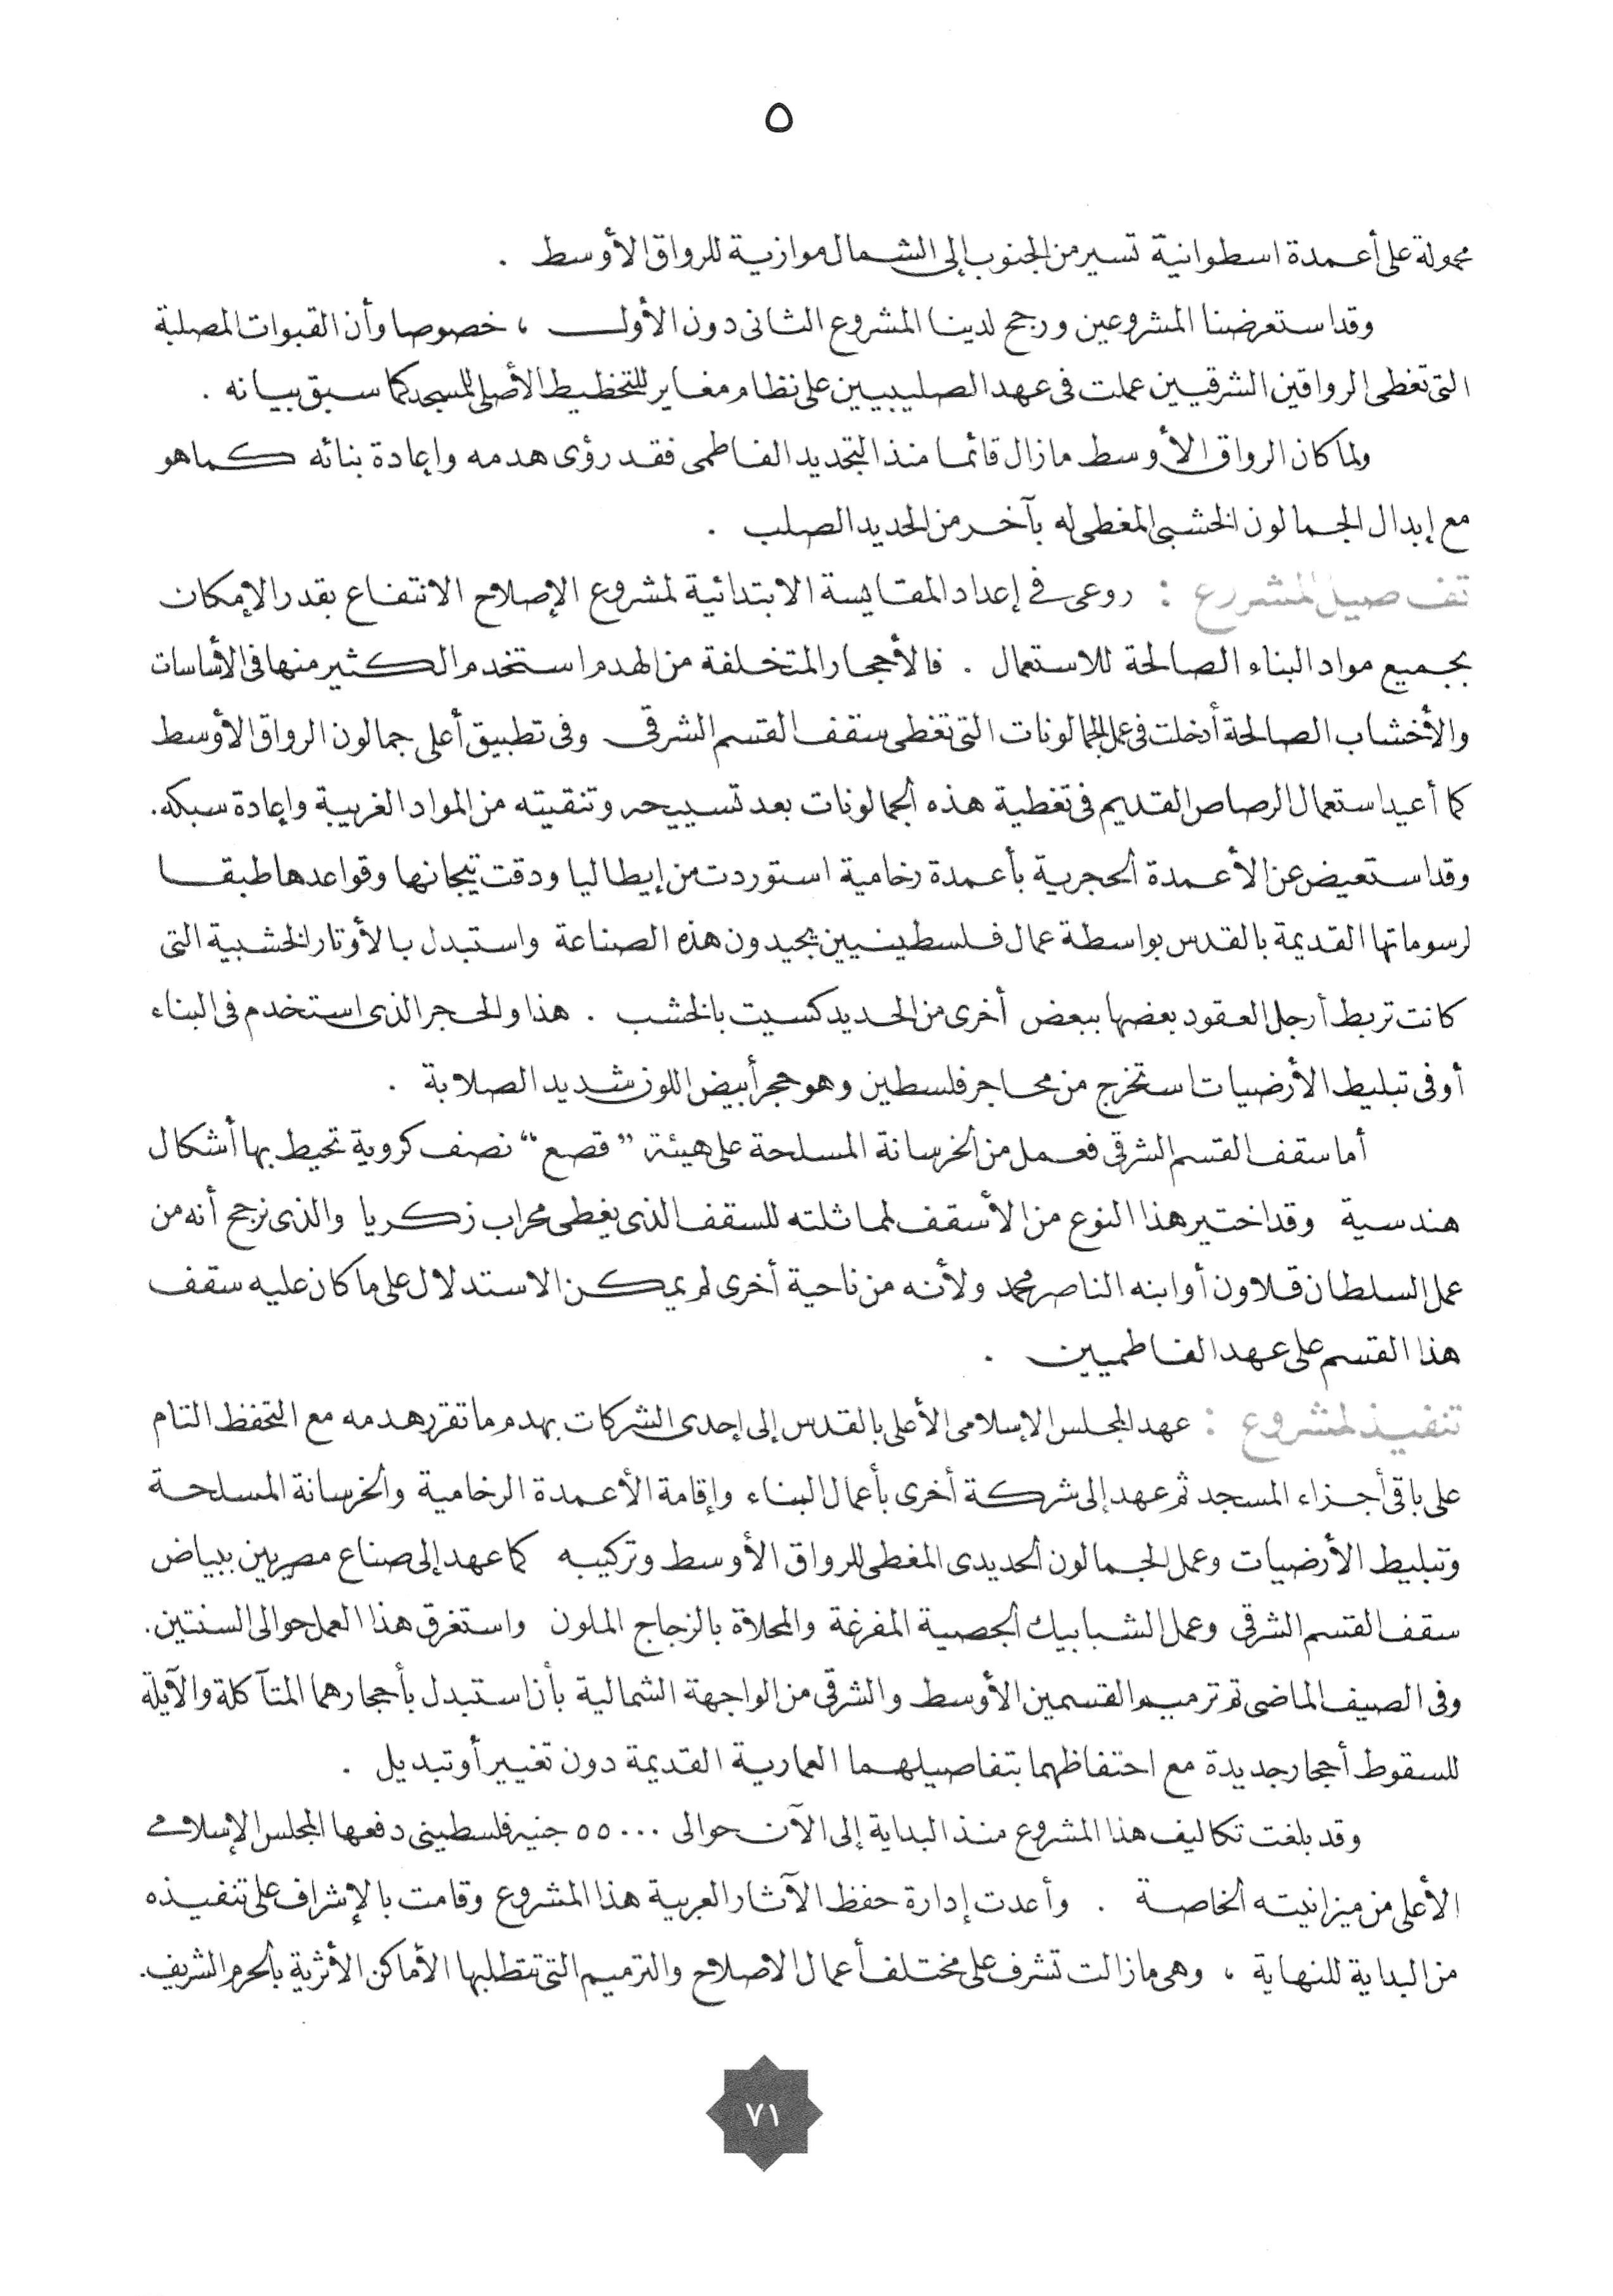 ٥
محمولة على أعمدة اسطوانية تسير من الجنوب إلى الشمال موازية للرواق الأوسط .
وقد استعرضنا المشروعين ورجح لدينا المشروع الثانى دون الأول ، خصوصا وأن القبوات المصلبة
التى تغطى الرواقين الشرقيين عملت فى عهد الصليبيين على نظام مغاير للتخطيط الأصلى للمسجد كما سبق بيانه .
ولما كان الرواق الأوسط مازال قائما منذ التجديد الفاطمى فقد رؤى هدمه وإعادة بنائه كما هو
مع إبدال الجمالون الخشبى المغطى له بآخر من الحديد الصلب .
تفاصيل المشروع : روعى فى إعداد المقايسة الابتدائية لمشروع الإصلاح الانتفاع بقدر الإمكان
بجميع مواد البناء الصالحة للاستعمال . فالأحجار المتخلفة من الهدم استخدم الكثير منها فى الأساسات
والأخشاب الصالحة أدخلت فى عمل الجمالونات التى تغطى سقف القسم الشرقى وفى تطبيق أعلى جمالون الرواق الأوسط
كما أعيد استعمال الرصاص القديم فى تغطية هذه الجمالونات بعد تسييحه وتنقيته من المواد الغريبة وإعادة سبكه.
وقد استعيض عن الأعمدة الحجرية بأعمدة رخامية استوردت من إيطاليا ودقت تيجانها وقواعدها طبقا
لرسوماتها القديمة بالقدس بواسطة عمال فلسطينيين يجيدون هذه الصناعة واستبدل بالأوتار الخشبية التى
كانت تربط أرجل العقود بعضها ببعض أخرى من الحديد كسيت بالخشب . هذا والحجر الذى استخدم فى البناء
أو فى تبليط الأرضيات استخرج من محاجر فلسطين وهو حجر أبيض اللون شديد الصلابة .
أما سقف القسم الشرقى فعمل من الخرسانة المسلحة على هيئة "قصع" نصف كروية تحيط بها أشكال
هندسية وقد اختير هذا النوع من الأسقف لمماثلته للسقف الذى يغطى محراب زكريا والذى نرجح أنه من
عمل السلطان قلاون أو ابنه الناصر محمد ولأنه من ناحية أخرى لم يمكن الاستدلال على ما كان عليه سقف
هذا القسم على عهد الفاطميين .
تنفيذ المشروع : عهد المجلس الإسلامى الأعلى بالقدس إلى إحدى الشركات بهدم ما تقرر هدمه مع التحفظ التام
على باقى أجزاء المسجد ثم عهد إلى شركة أخرى بأعمال البناء وإقامة الأعمدة الرخامية والخرسانة المسلحة
وتبليط الأرضيات وعمل الجمالون الحديدى المغطى للرواق الأوسط وتركيبه كما عهد إلى صناع مصريين ببياض
سقف القسم الشرقى وعمل الشبابيك الجصية المفرغة والمحلاة بالزجاج الملون واستغرق هذا العمل حوالى السنتين.
وفى الصيف الماضى تم ترميم القسمين الأوسط والشرقى من الواجهة الشمالية بأن استبدل بأحجارهما المتآكلة والآيلة
للسقوط أحجار جديدة مع احتفاظهما بتفاصيلهما المعمارية القديمة دون تغيير أو تبديل .
وقد بلغت تكاليف هذا المشروع منذ البداية إلى الآن حوالى ٥٥٠٠٠ جنيه فلسطينى دفعها المجلس الإسلامى
الأعلى من ميزانيته الخاصة . وأعدت إدارة حفظ الآثار العربية هذا المشروع وقامت بالإشراف على تنفيذه
من البداية للنهاية ، وهى مازالت تشرف على مختلف أعمال الاصلاح والترميم التى تتطلبها الأماكن الأثرية بالحرم الشريف.
٧١